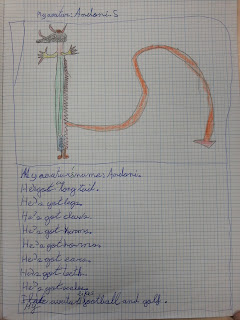 My avatar: Andoni. S
My avatar's name's Andoni.
He's got long tail.
He's a got legs.
He's a got claws.
He's a got horns.
He's a got horns.
He's a got ears.
He's a got teeth.
He's a got scales.
football and golf.